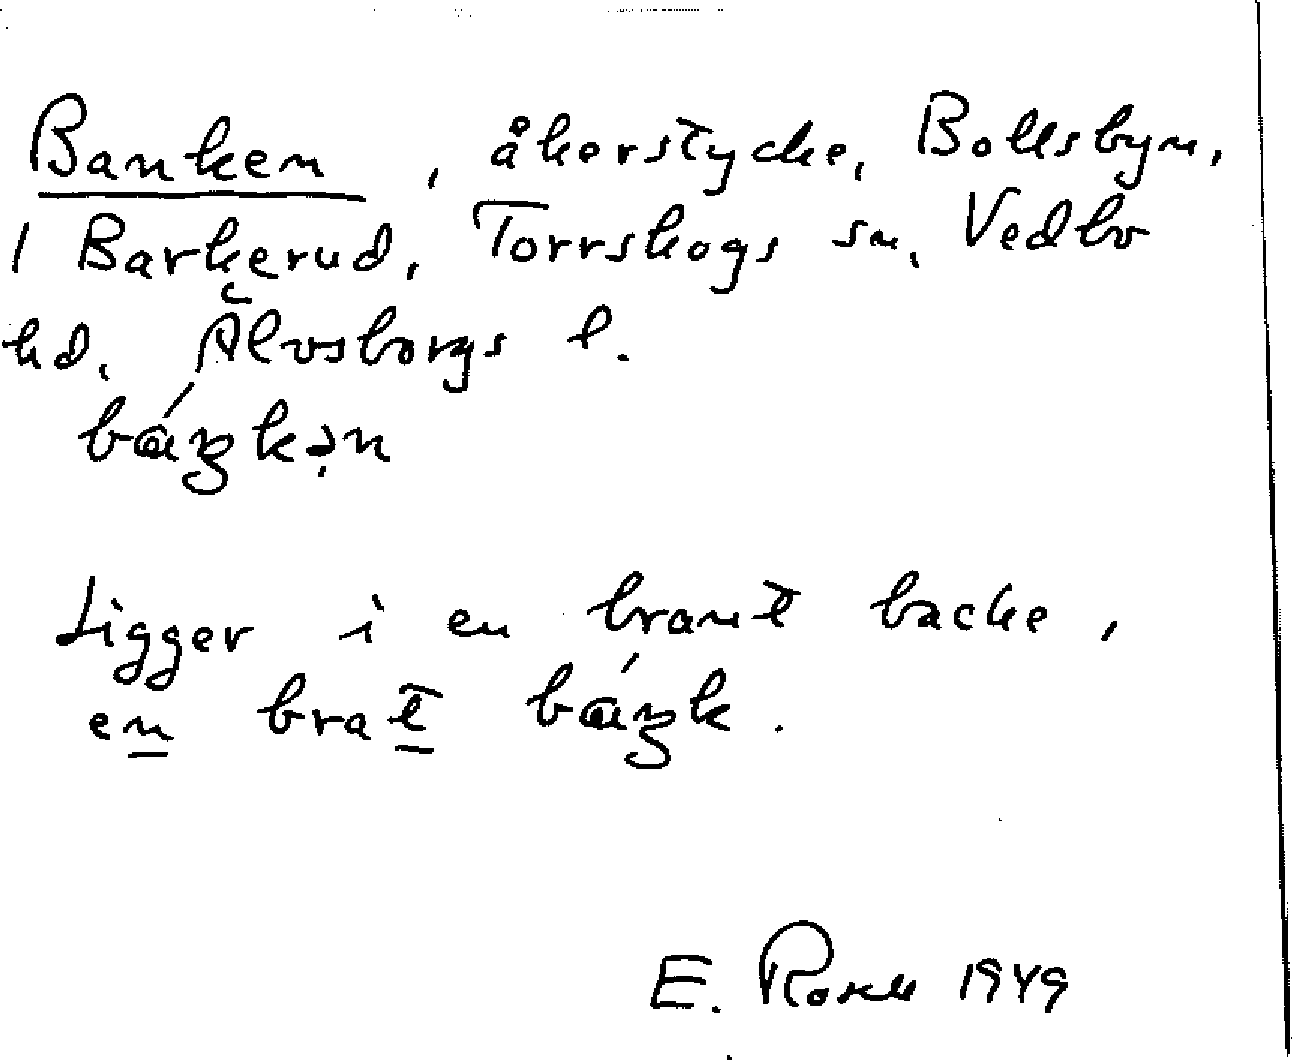 Banken, åkerstycke, Bollsbyn,
1 Barkerud, Torrskogs sn, Vedbo
hd, Älvsborgs l.
báŋkən
Ligger i en brant backe,
en brat báŋk.
E. 1949